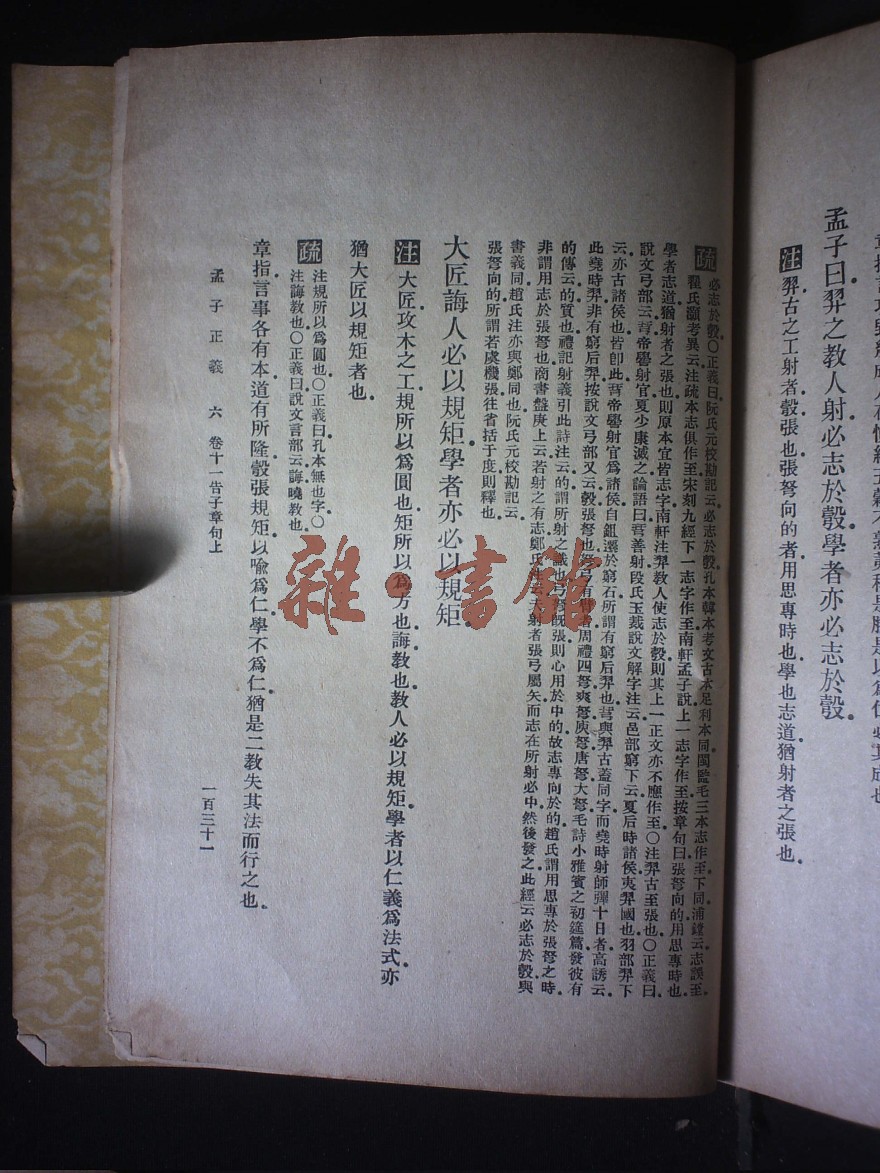 孟子曰羿之教人射必志於彀學者亦必志於彀
注 羿古之工射者彀張也張弩向的者用思專時也學也志道猶射者之張也
疏 必志於彀〇正義曰阮氏元校勘記云必志於彀孔本韓本考文古本足利本同閩監毛三本志作至下同浦鏜云志誤至
翟氏灝考異云注疏本志俱作至宋刻九經下一志字作至南軒孟子說上一志字作至按章句曰張弩向的用思專時也
學者志道猶射者之張也則原本宜皆志字南軒注羿教人使志於彀則其上一正文亦不應作至〇注羿古至張也〇正義曰
說文弓部云𢎌帝嚳射官夏少康滅之論語曰𢎌善射段氏玉裁說文解字注云邑部窮下云夏后時諸侯夷羿國也羽部羿下
云亦古諸侯也皆卽此𢎌帝嚳射官爲諸侯自鉏遷於窮石所謂有窮后羿也𢎌與羿古蓋同字而堯時射師彈十日者高誘云
此堯時羿非有窮后羿按說文弓部又云彀張弩也弩弓有臂者周禮四弩夾弩庾弩唐弩大弩毛詩小雅賓之初筵篇發彼有
的傳云的質也禮記射義引此詩注云的謂所射之識也弓弩旣張則心用於中的故志專向於的趙氏謂用思專於張弩之時
非謂用志於張弩也商書盤庚上云若射之有志鄭氏注云夫射者張弓屬矢而志在所射必中然後發之此經云必志於彀與
書義同趙氏注亦與鄭同也阮氏校勘記云
張弩向的所謂若虞機張往省括于度則釋也
大匠誨人必以規矩學者亦必以規矩
注 大匠攻木之工規所以爲圓也矩所以爲方也誨教也教人必以規矩學者以仁義爲法式亦
猶大匠以規矩者也
疏 注規所以爲圓也〇正義曰孔本無也字〇
注誨教也〇正義曰說文言部云誨曉教也
章指言事各有本道有所隆彀張規矩以喻爲仁學不爲仁猶是二教失其法而行之也
孟子正義 六 卷十一告子章句上 一百三十一
雜·書館